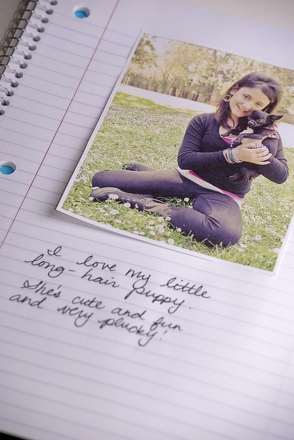 I love my little
long-hair puppy.
She's cute and fun
and very plucky!